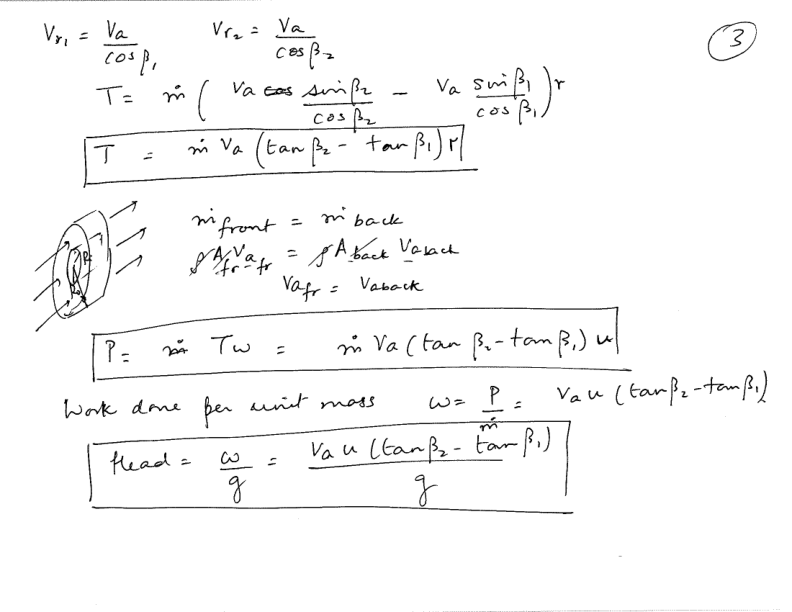 Vr₁ = Va/cosβ₁   Vr₂ = Va/cosβ₂
3
T = ṁ ( Va sinβ₂/cosβ₂ − Va sinβ₁/cosβ₁ ) r
T = ṁ Va (tan β₂ − tan β₁) r
ṁ front = ṁ back
ρ A fr Va fr = ρ A back Va back
Va fr = Va back
P = Tω = ṁ Va (tan β₂ − tan β₁) u
Work done per unit mass   ω = P/ṁ = Va u (tan β₂ − tan β₁)
Head = ω/g = Va u (tan β₂ − tan β₁)/g